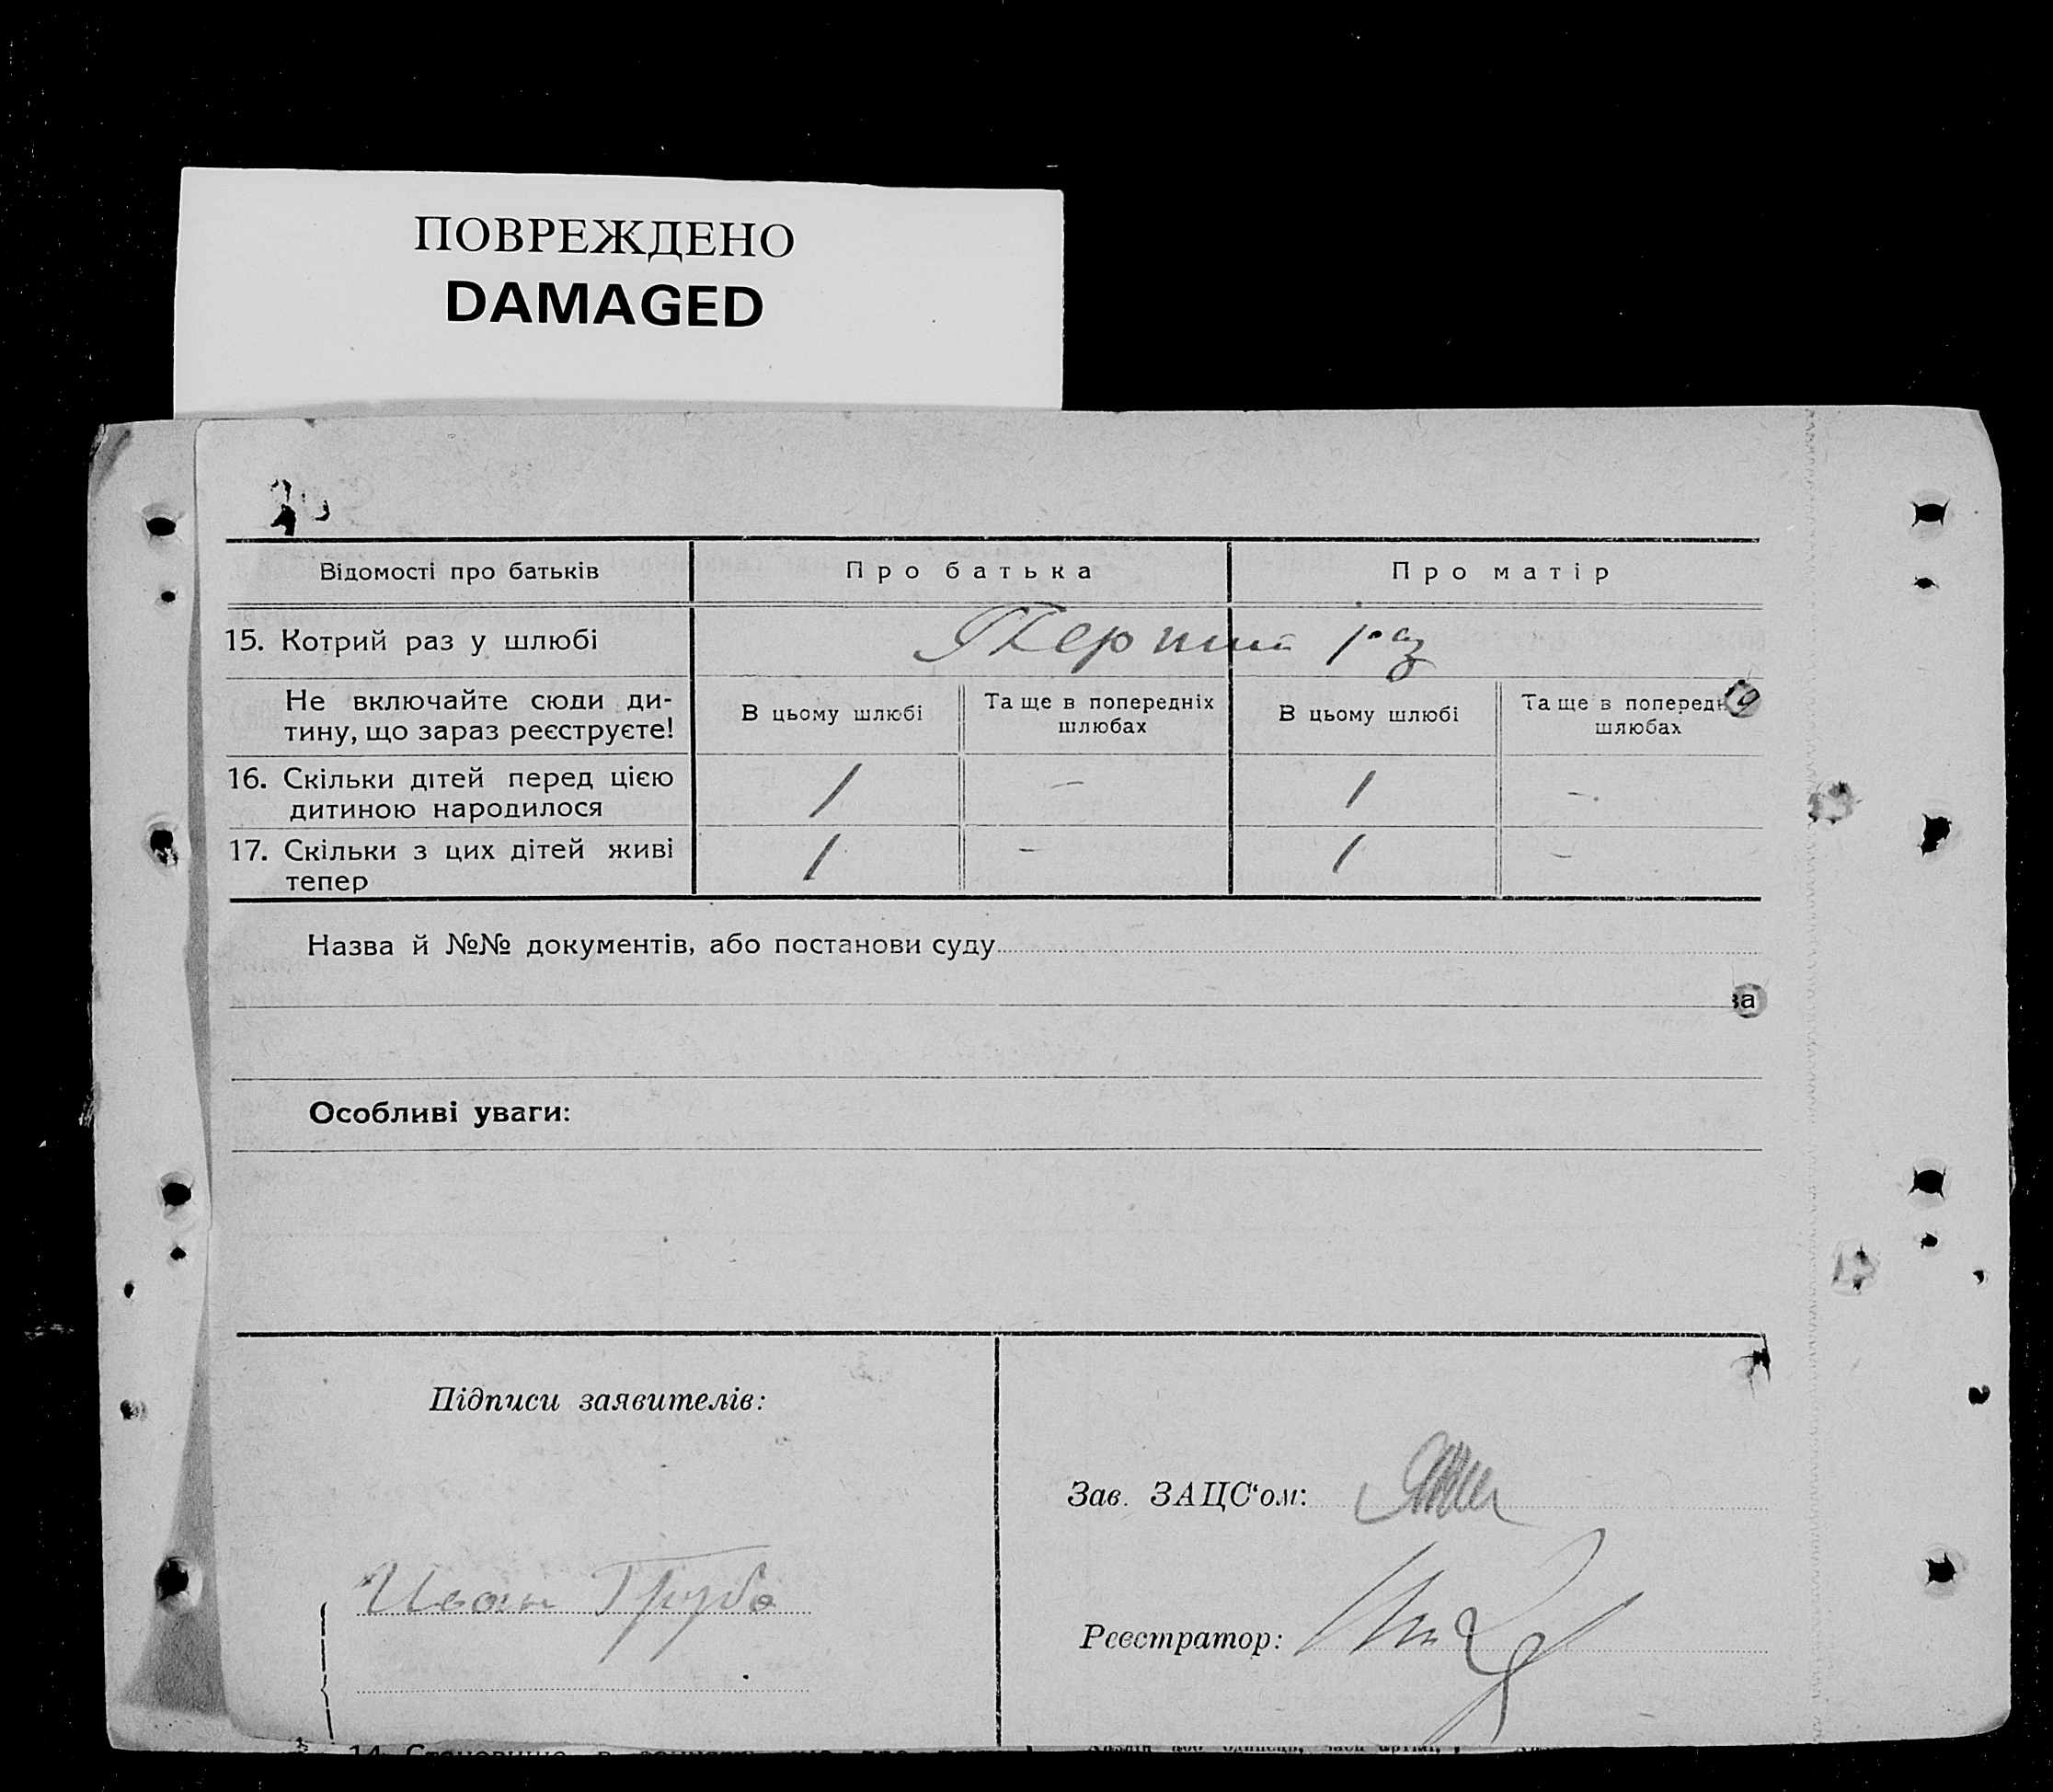 ПОВРЕЖДЕНО
DAMAGED
Відомості про батьків
Про батька
Про матір
15. Котрий раз у шлюбі
Перший раз
Не включайте сюди ди-
тину, що зараз реєструєте!
В цьому шлюбі
Та ще в попередніх
шлюбах
В цьому шлюбі
Та ще в попередн
шлюбах
16. Скільки дітей перед цією
дитиною народилося
1 – 1 –
17. Скільки з цих дітей живі
тепер
1 – 1 –
Назва й №№ документів, або постанови суду
за
Особливі уваги:
Підписи заявителів:
Зав. ЗАЦС‘ом:
Иван Труба
Реєстратор:
14. Становище в занятті